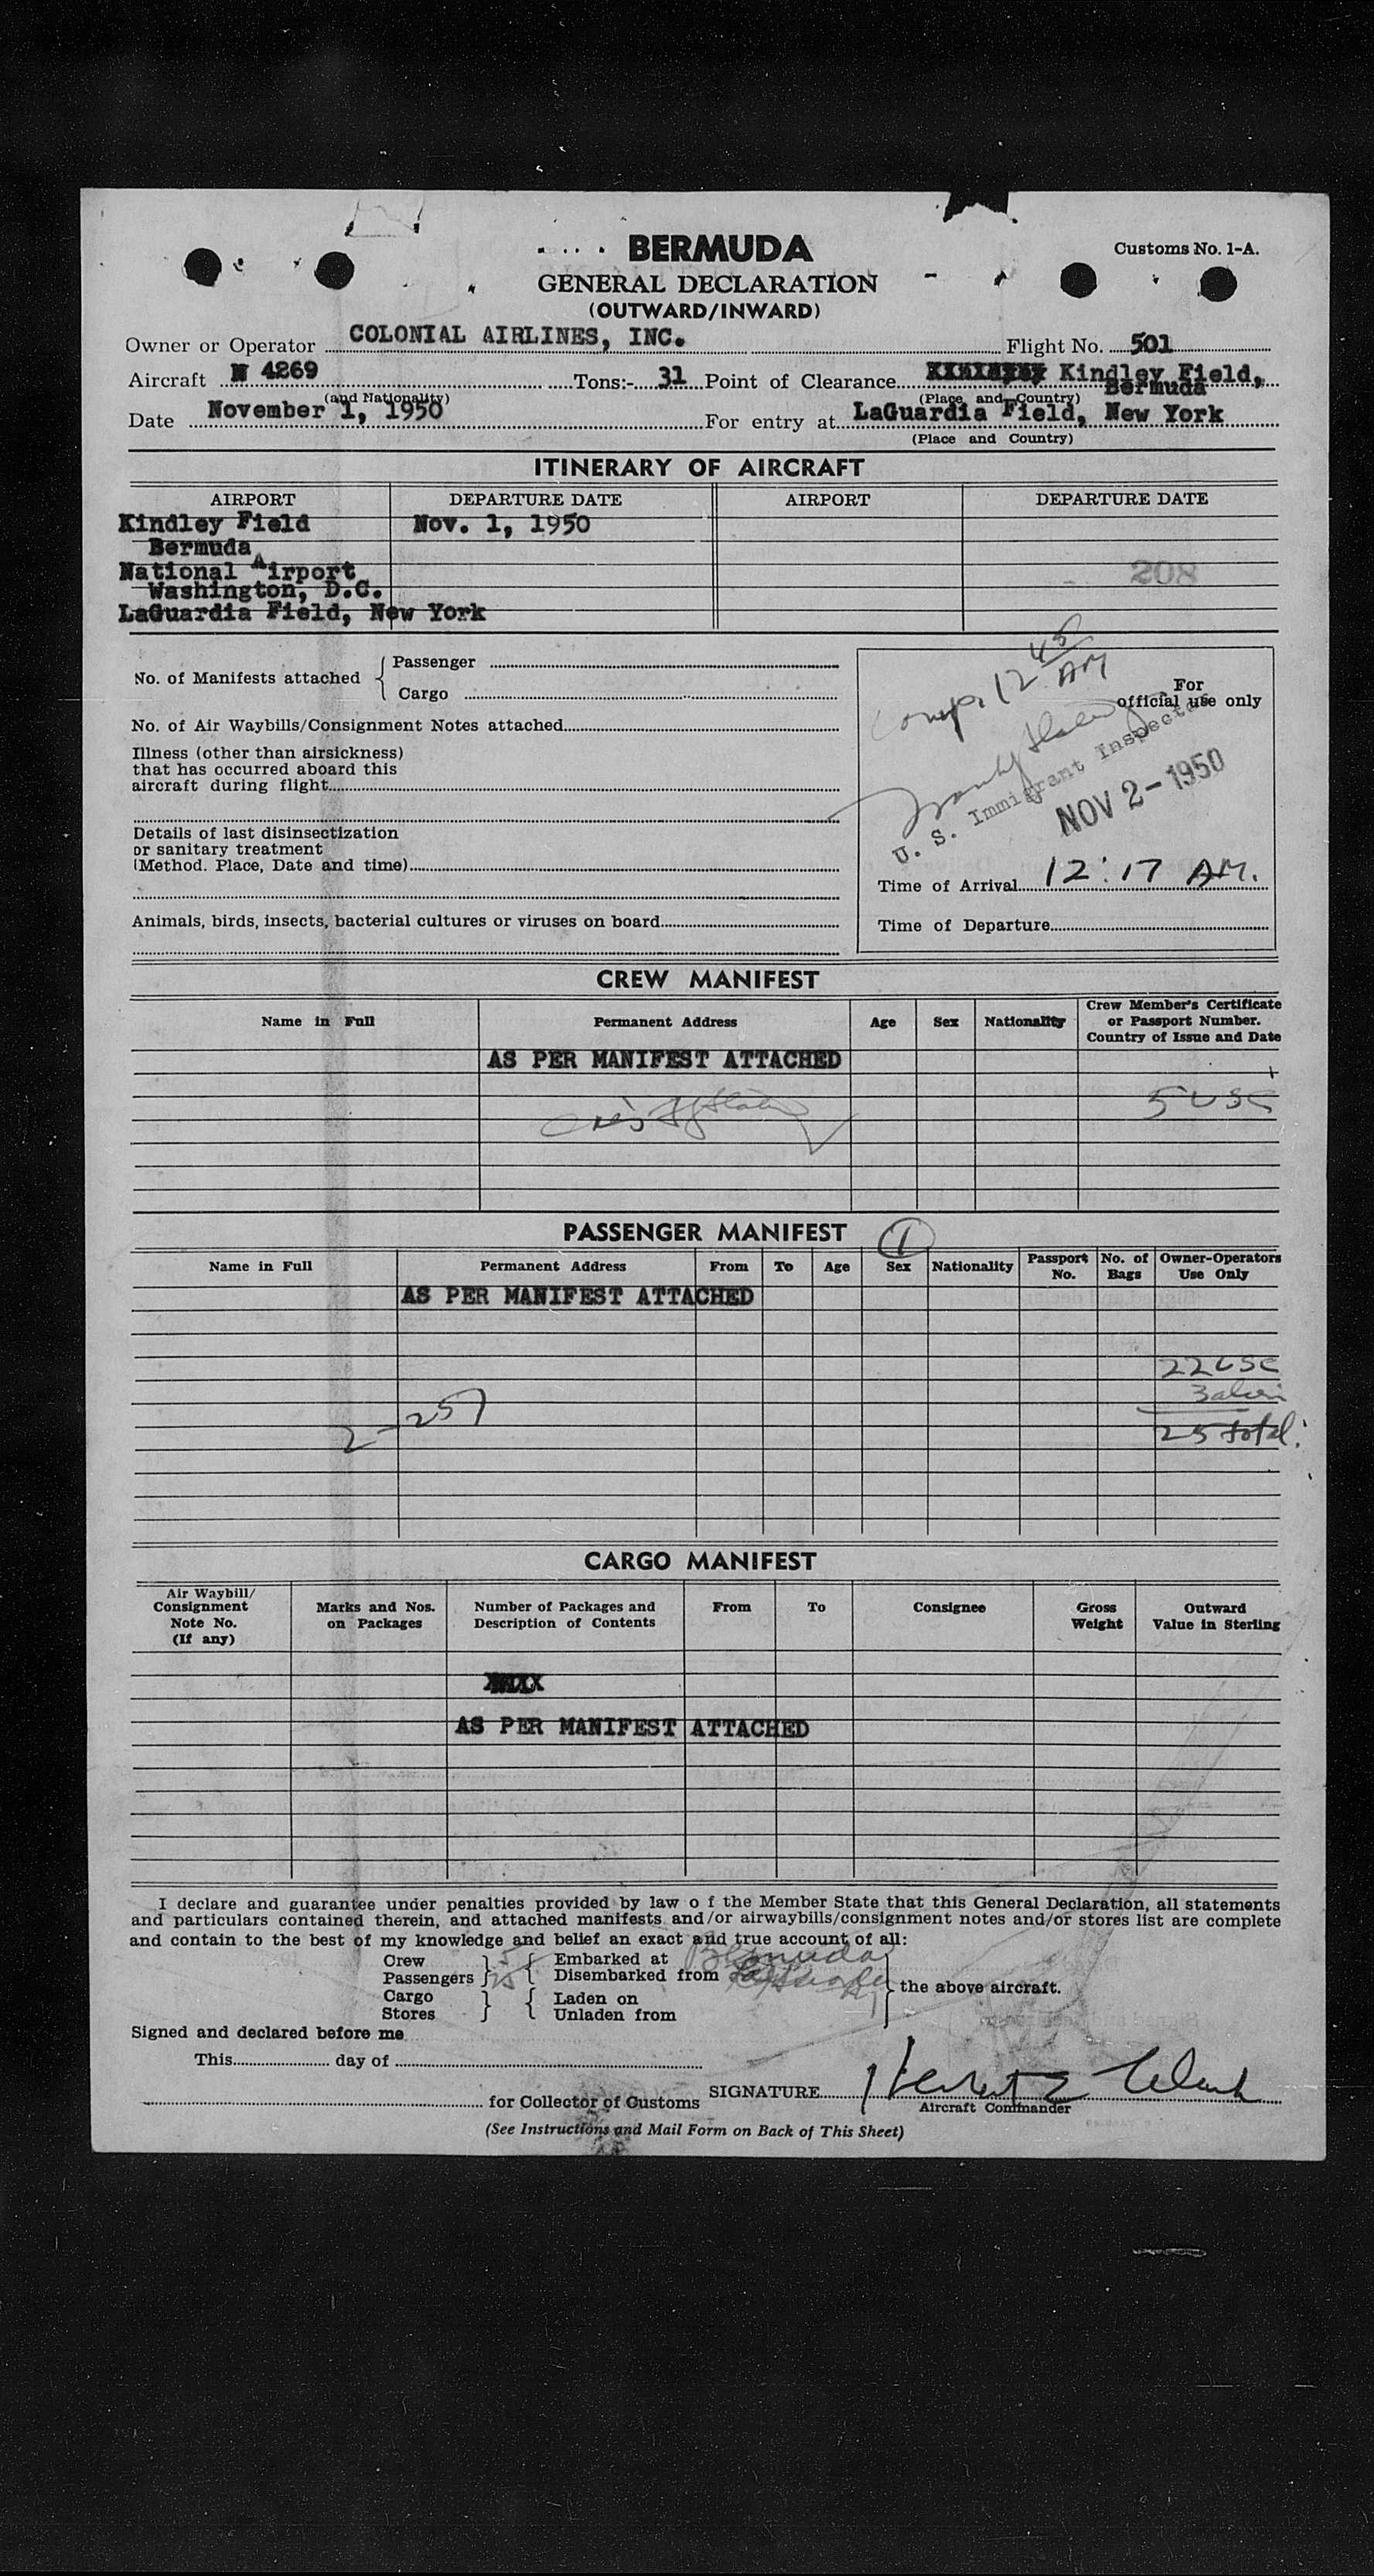 BERMUDA
Customs No. 1-A.
GENERAL DECLARATION
(OUTWARD/INWARD)
Owner or Operator COLONIAL AIRLINES, INC. Flight No. 501
Aircraft N 4269 Tons:- 31 Point of Clearance Kindley Field,
Bermuda
(and Nationality) (Place and Country)
Date November 1, 1950 For entry at LaGuardia Field, New York
(Place and Country)
ITINERARY OF AIRCRAFT
AIRPORT DEPARTURE DATE AIRPORT DEPARTURE DATE
Kindley Field Nov. 1, 1950
Bermuda
National Airport 208
Washington, D.C.
LaGuardia Field, New York
No. of Manifests attached { Passenger
Cargo
No. of Air Waybills/Consignment Notes attached
Illness (other than airsickness)
that has occurred aboard this
aircraft during flight
Details of last disinsectization
or sanitary treatment
(Method. Place, Date and time)
Animals, birds, insects, bacterial cultures or viruses on board
Comp. 12 45 AM
For
official use only
U. S. Immigrant Inspector
NOV 2-1950
Time of Arrival 12:17 AM.
Time of Departure
CREW MANIFEST
Name in Full Permanent Address Age Sex Nationality Crew Member's Certificate
or Passport Number.
Country of Issue and Date
AS PER MANIFEST ATTACHED
5 USC
PASSENGER MANIFEST 1
Name in Full Permanent Address From To Age Sex Nationality Passport No. No. of Bags Owner-Operators Use Only
AS PER MANIFEST ATTACHED
22 USC
3 alien
2-257
25 total.
CARGO MANIFEST
Air Waybill/
Consignment
Note No.
(If any)
Marks and Nos.
on Packages
Number of Packages and
Description of Contents
From To Consignee Gross
Weight
Outward
Value in Sterling
AS PER MANIFEST ATTACHED
I declare and guarantee under penalties provided by law o f the Member State that this General Declaration, all statements
and particulars contained therein, and attached manifests and/or airwaybills/consignment notes and/or stores list are complete
and contain to the best of my knowledge and belief an exact and true account of all:
Crew } 5 { Embarked at Bermuda
Passengers } 25 { Disembarked from
} the above aircraft.
Cargo } { Laden on
Stores } { Unladen from
Signed and declared before me
This day of
for Collector of Customs SIGNATURE
Aircraft Commander
(See Instructions and Mail Form on Back of This Sheet)